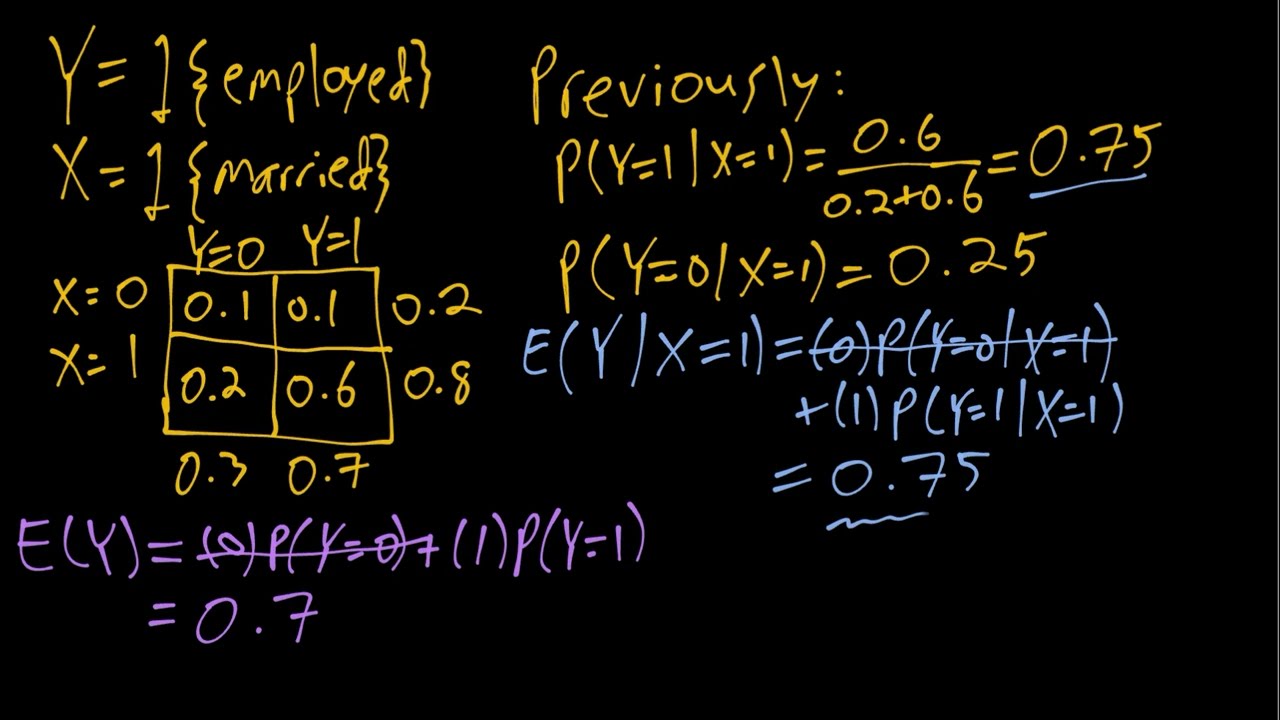 Y = 1{employed}
X = 1{married}
Y=0 Y=1
X=0 0.1 0.1 0.2
X=1 0.2 0.6 0.8
0.3 0.7
E(Y) = (0)P(Y=0)+(1)P(Y=1)
= 0.7
Previously:
P(Y=1|X=1) = 0.6 / 0.2+0.6 = 0.75
P(Y=0|X=1) = 0.25
E(Y|X=1) = (0)P(Y=0|X=1)
+(1)P(Y=1|X=1)
= 0.75